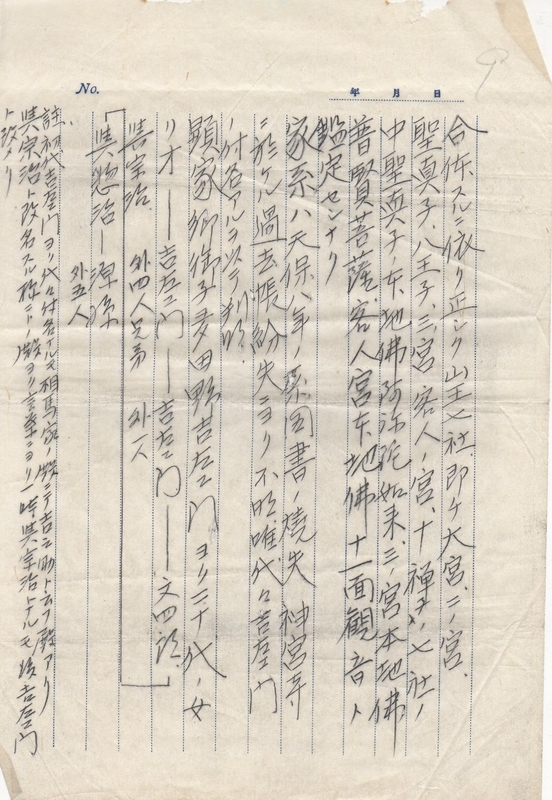 9
No.
年 月 日
合体スルニ依リ正シク山王七社即ケ大宮、二ノ宮、
聖真子、八王子、三宮 客人ノ宮、十禅子ノ七社ノ
中聖真子ノ本地佛阿弥陀如来、三ノ宮本地佛
普賢菩薩、客人宮本地佛十一面観音ト
鑑定センナリ
家系ハ天保八年ノ系図書ノ焼失 神宮寺
ニ於ケル過去帳紛失ニヨリ不明唯代々吉左エ門
ノ付名アルヲ以テ判明
顕家卿御子麦田野吉左エ門ヨリ二十代ノ女
リオ ― 吉左エ門 ― 吉左エ門 ― 文四郎
宗治 外四人兄弟 外一人
惣治 ―
外五人
註、初代吉左エ門ヨリ代々付名ナルモ相馬家ノ殿ニテ吉之助ト云フ殿アリ
宗治ト改名スル様ニトノ殿ヨリ言葉ニヨリ一時 宗治トナルモ後吉左エ門
ト改メリ